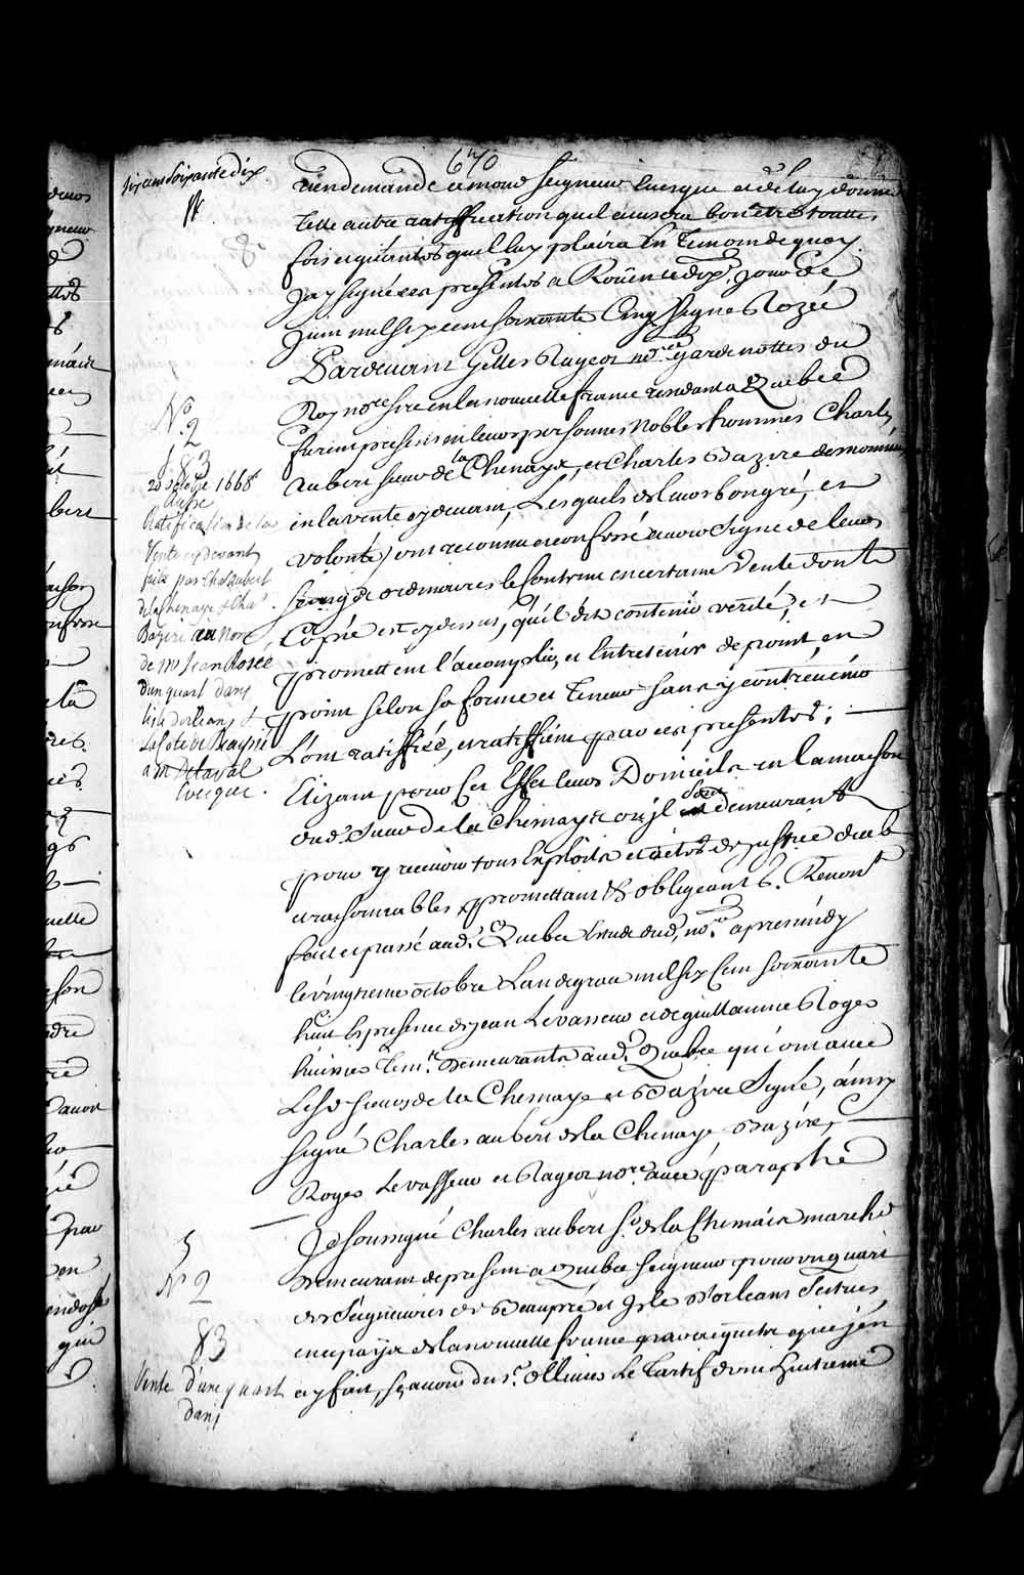 670
six cens soixante dix.
rien demandé a mond seigneur Evesque et de luy donner
telle autre ratiffication quil avisera bon estre touttes
fois et quantes quil luy plaira En temoin de quoy
Jay signé ces presentes a Roüen ce dixe. jour de
Juin mil six cent soixante Cinq signe Rozée
Pardevant Gilles Rageot nore. gardenottes du
Roy nore. en la nouvelle france residant a Quebec
furent presens en leurs personnes Nobles hommes Charles
Aubert sieur de la Chenaye, et Charles Bazire denommés
en la vente cy devant, Lesquels de leur bon gré, et
volonté, ont reconnu et confessé avoir signé de leurs
seings ordinaires le contenu en certaine vente dont la
Copie est cy dessus, qu'il dit contenir verité, et
promettent l'accomplir, et Entretenir de point, en
point selon sa forme et teneur sans y contrevenir
L'ont ratiffiée, et ratiffient par ces presentes;
Elizant pour Cet Effet leurs Domicile en la maison
dud. sieur de la Chenaye ou jl sont demeurant
pour y recevoir tous Exploits et actes de justice deub
et raisonnables promettant &c obligeant &c. Renonct
fait et passé aud. Quebec Estude dud. nore. apres midy
le vingtieme octobre L'an de grace mil six Cent soixante
huit En presence de jean Levasseur et de guillaume Roger
huissiers tem. demeurants aud. Quebec qui ont avec
Lesd. sieurs de la Chenaye et Bazire Signé, ainsy
signé Charles aubert de la Chenaye, Bazire,
Roger Levasseur et Rageot nore. avec paraphe
Je soussigné Charles aubert sr. de la Chenaie marchd
demeurant de present a Quebec seigneur pour un quart
des seigneuries de Beaupré et Isle d'orleans scitues
en ce païs de la nouvelle france par acquets que j'en
ay fait, sçavoir du sr. Ollivier Le Tardif d'un huitieme
No. 2
83
20 octobre 1668
Ratification de la
Vente cy devant
faite par Chs. Aubert
de la Chenaye & Chs.
Bazire au nom
de Mr Jean Rosée
d'un quart dans
l'isle d'orleans &
La Cote de Beaupré
a Mr De Laval
Evêque.
No 2
83
Vente d'un quart
dans